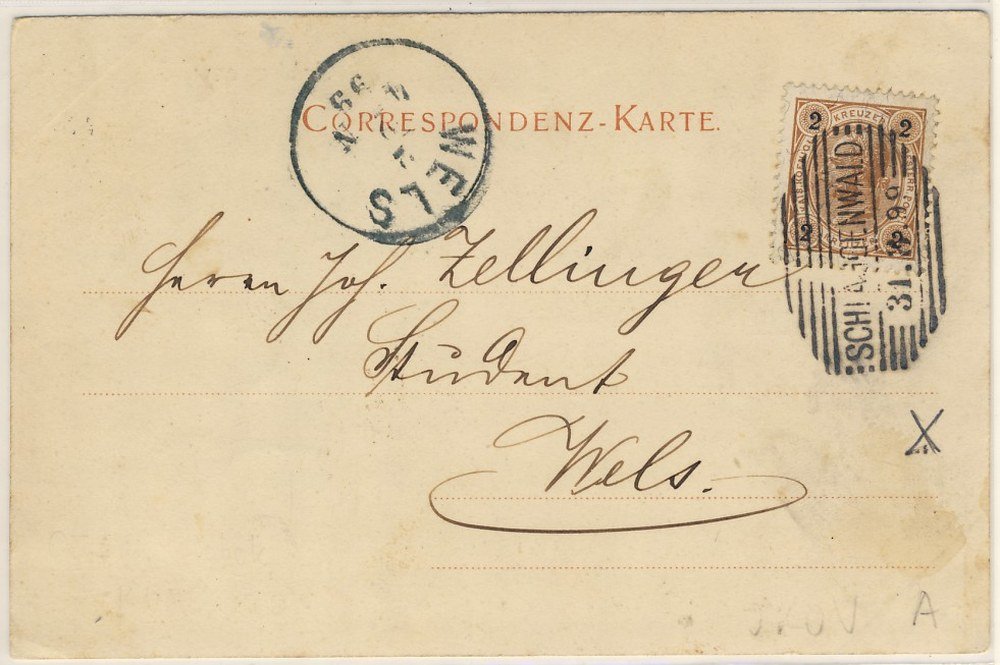 CORRESPONDENZ-KARTE.
WELS
99
2 KREUZER 2
2 2
SCHLAGGENWALD
31.
99
Herrn Joh. Zellinger
Student
Wels.
X
A